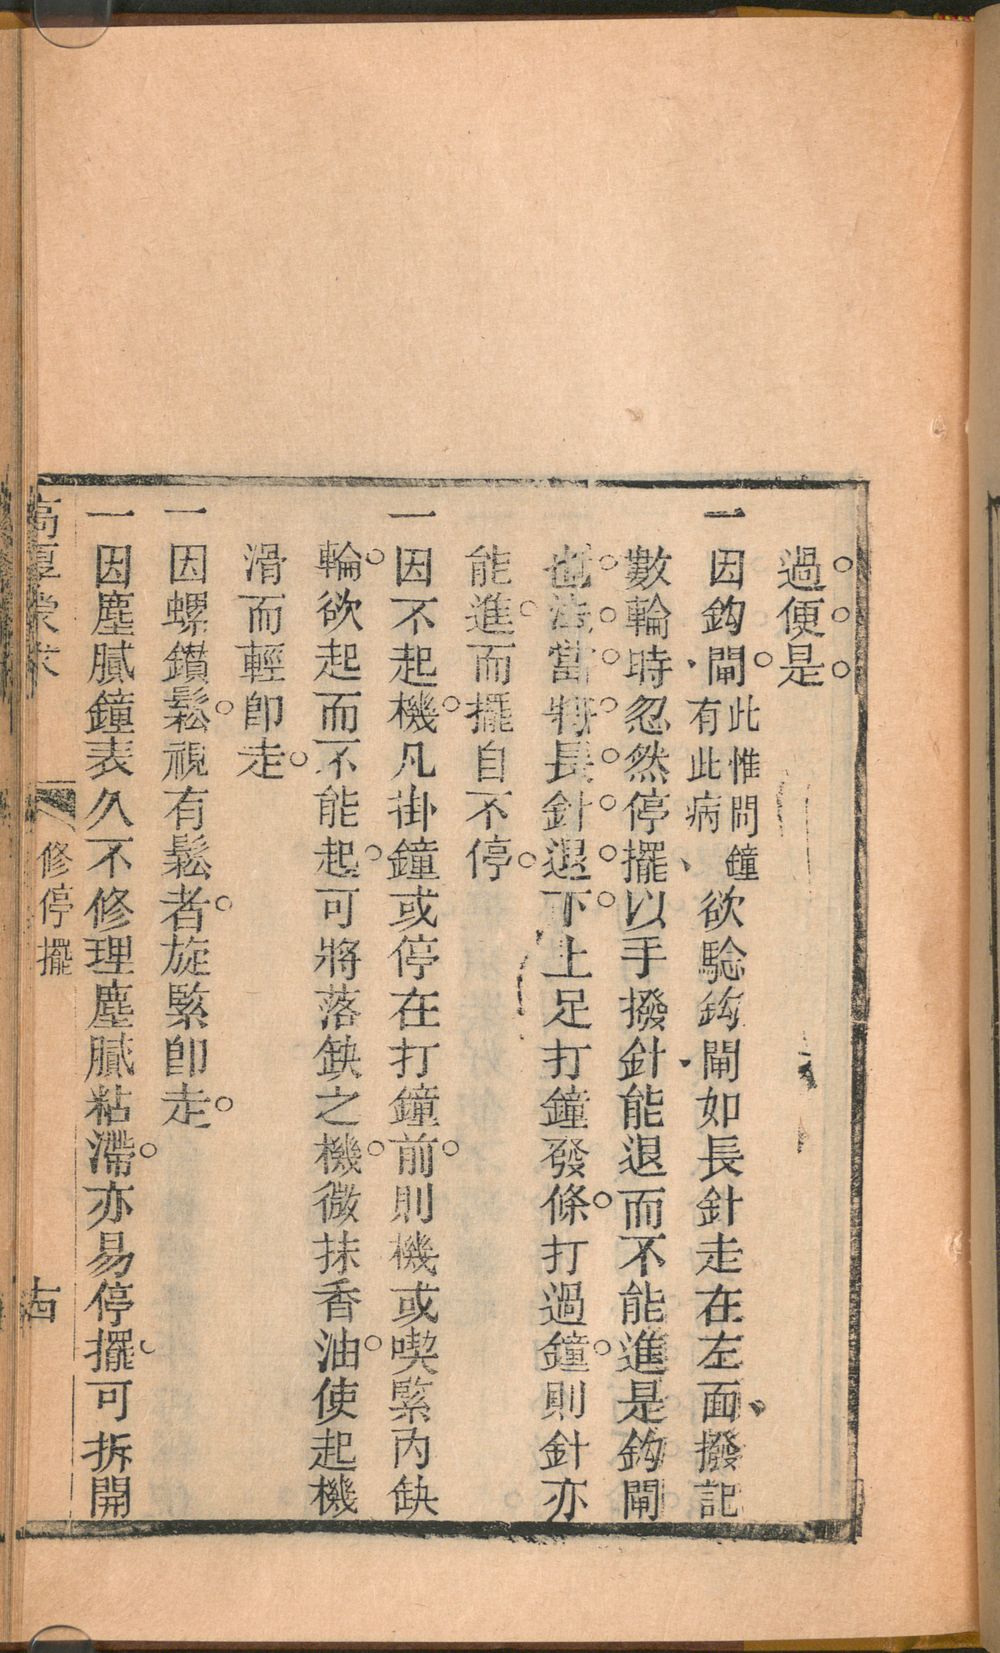 過便是
一因鈎閘此惟問鐘有此病欲騐鈎閘如長針走在左面撥記
數輪時忽然停擺以手撥針能退而不能進是鈎閘
也法當將長針退下上足打鐘發條打過鐘則針亦
能進而擺自不停
一因不起機凡掛鐘或停在打鐘前則機或喫緊內缺
輪欲起而不能起可將落缺之機微抹香油使起機
滑而輕卽走
一因螺鑽鬆視有鬆者旋緊卽走
一因塵膩鐘表久不修理塵膩粘滯亦易停擺可拆開
高厚蒙求
修停擺
古